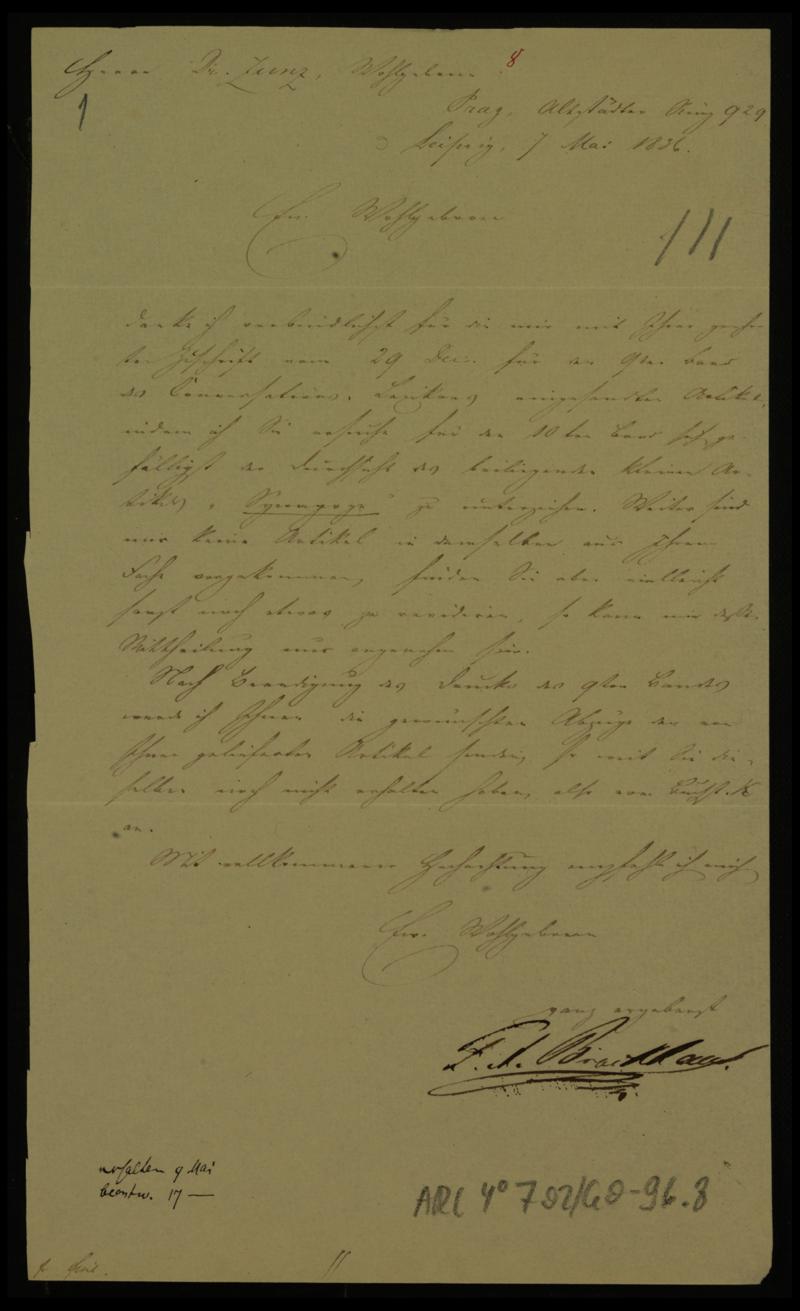 Herrn Dr. Zunz, Wohlgeboren 8
1
Prag, Altstädter Ring 929
Leipzig, 7 Mai 1836.
Ew. Wohlgeboren
111
danke ich verbindlichst für die mir mit Ihrer geehr-
ten Zuschrift vom 29 Dec. für den 9ten Band
des Conversations-Lexikons eingesandten Artikel,
indem ich Sie ersuche für den 10ten Band sich ge-
fälligst der Durchsicht des beiliegenden kleinen Ar-
tikels „Synagoge" zu unterziehen. Weiter sind
mir keine Artikel in demselben aus Ihrem
Fache vorgekommen, finden Sie aber vielleicht
sonst noch etwas zu revidiren, so kann mir dessen
Mittheilung nur angenehm sein.
Nach Beendigung des Drucks des 9ten Bandes
werde ich Ihnen die gewünschten Abzüge der von
Ihnen gelieferten Artikel senden, so weit Sie die-
selben noch nicht erhalten haben, also vom Buchst.
an.
Mit vollkommener Hochachtung empfehle ich mich
Ew. Wohlgeboren
ganz ergebenst
F. A. Brockhaus.
erhalten 9 Mai
beantw. 17 —
ARC 4° 792/G0-96.8